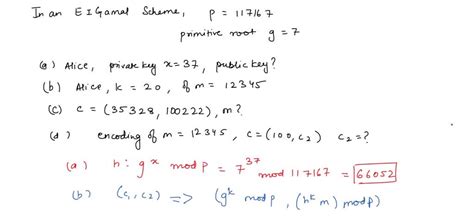 In an ElGamal Scheme, p = 117167
primitive root g = 7
(a) Alice, private key x = 37, public key?
(b) Alice, k = 20, of m = 12345
(c) c = (35328, 100222), m?
(d) encoding of m = 12345, c = (100, c₂) c₂ = ?
(a) h: gˣ mod p = 7³⁷ mod 117167 = 66052
(b) (c₁, c₂) => (gᵏ mod p, (hᵏ m) mod p)